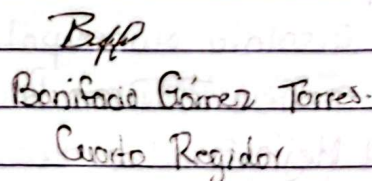 Bonifacio Gómez Torres.
Cuarto Regidor